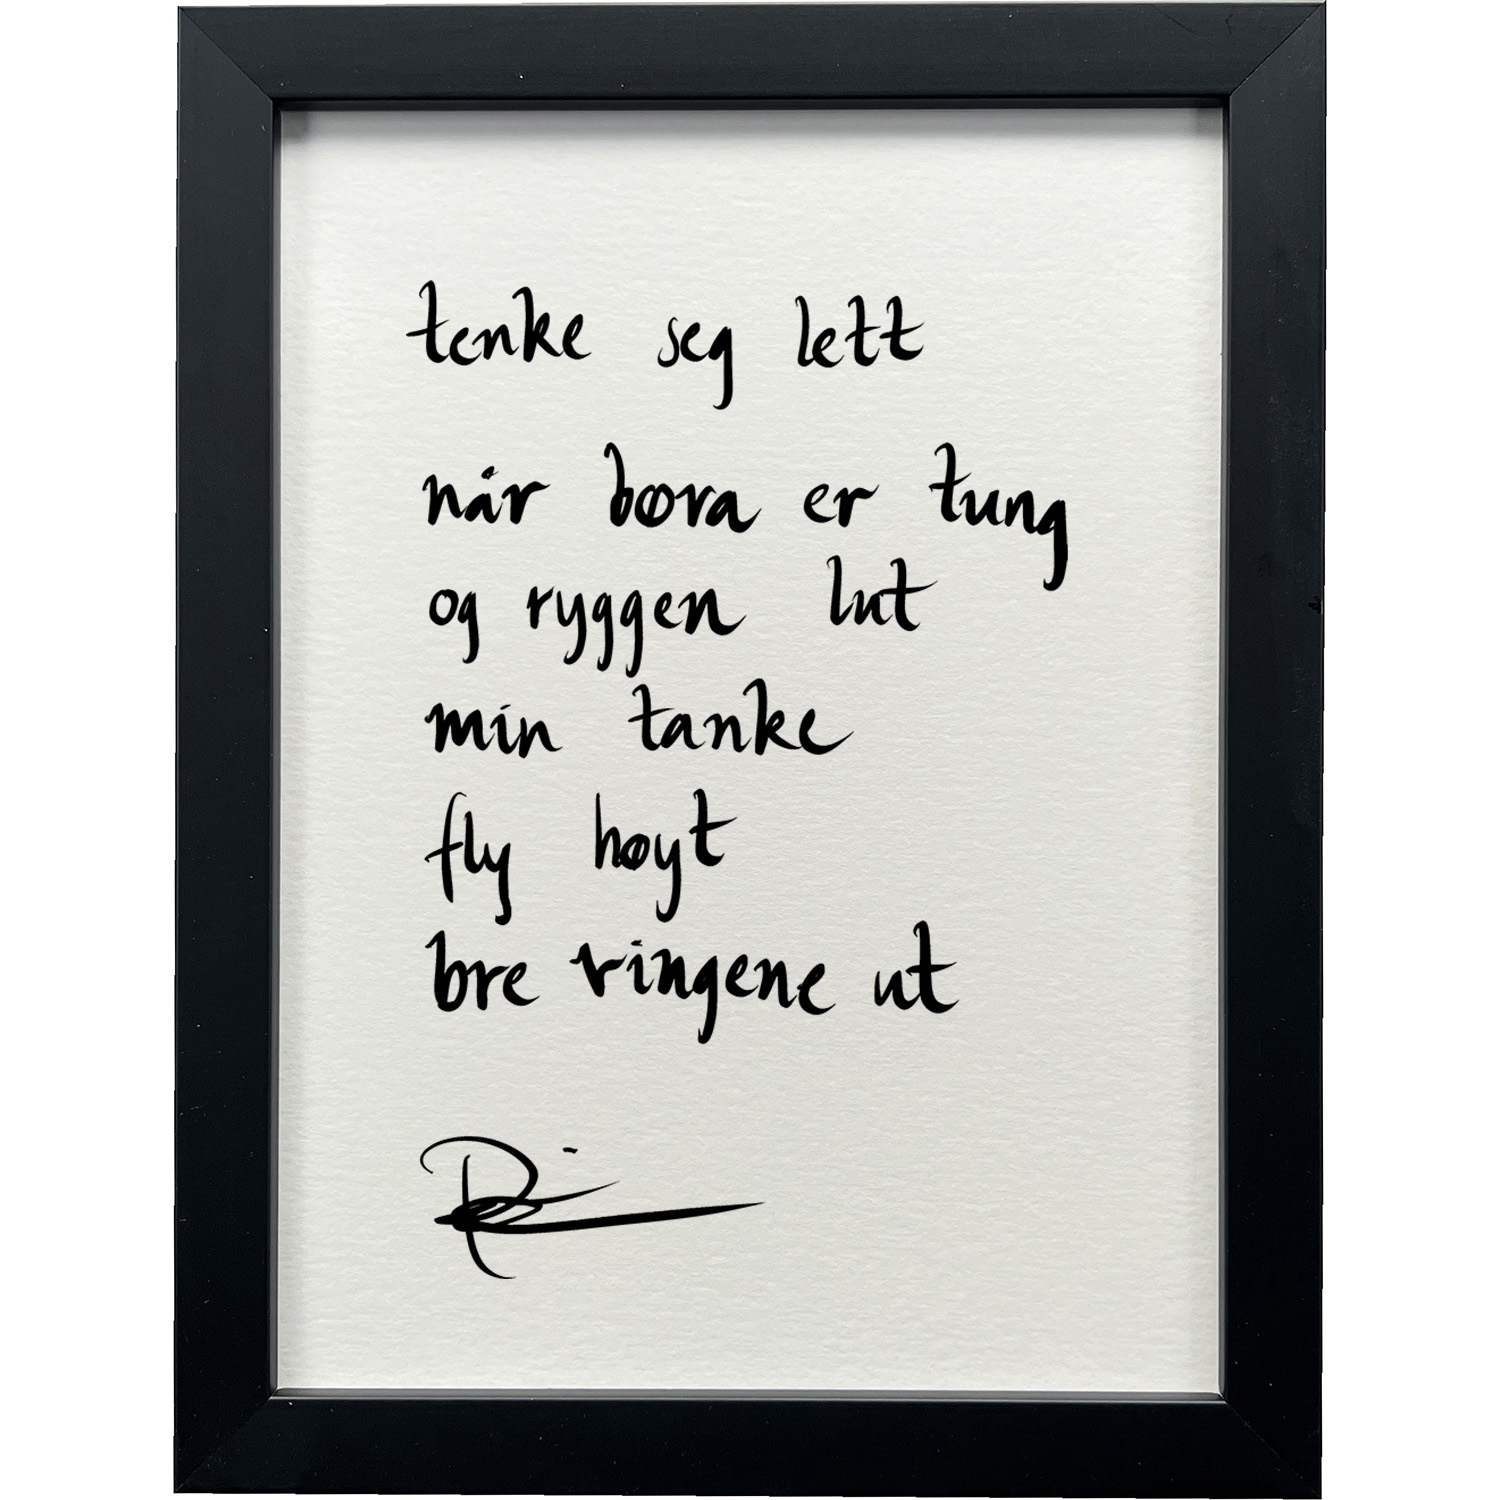 tenke seg lett
når børa er tung
og ryggen lut
min tanke
fly høyt
bre vingene ut